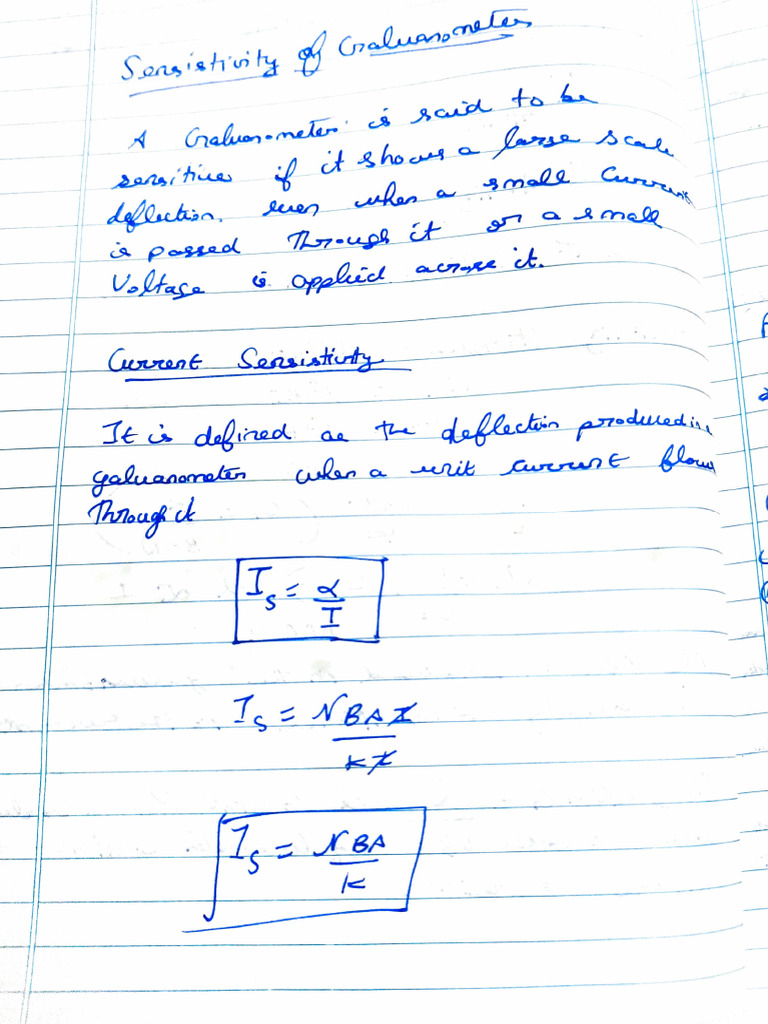 Sensistivity of Galvanometer
A Galvanometer is said to be
sensitive if it shows a large scale
deflection. even when a small current
is passed through it or a small
Voltage is applied across it.
Current Sensistivity
It is defined as the deflection produced in
galvanometer when a unit current flows
through it
I_s = α/I
I_s = NBAI/kI
I_s = NBA/k